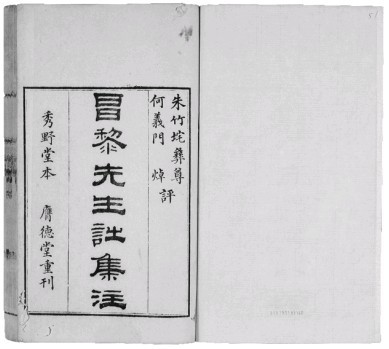 朱竹垞彝尊
何義門 焯 評
昌黎先生詩集注
秀野堂本 膺德堂重刊